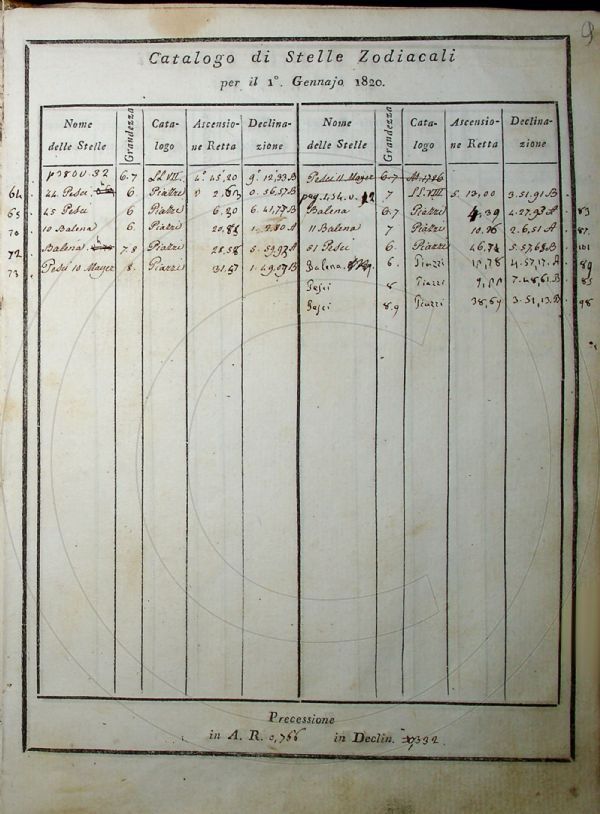 9
Catalogo di Stelle Zodiacali
per il 1°. Gennajo 1820.
Nome delle Stelle Grandezza Cata-logo Ascensio-ne Retta Declina-zione Nome delle Stelle Grandezza Cata-logo Ascensio-ne Retta Declina-zione
6.7 LL.VII. 45,20 12,33.B Pesci 11 Mayer 6-7
64 44 Pesci 6 Piazzi 0.56,57.B 7 LL.VIII. 5. 13,00 3.51,91.B
65 45 Pesci 6 Piazzi 6,20 6.41,77.B Balena 6.7 Piazzi 4.27,93.A 83
70 10 Balena 6 Piazzi A 11 Balena 7 Piazzi 2.6,51.A 87.
72 Balena 7.8 Piazzi 28,58 51 Pesci 6. Piazzi 46,72 5.57,68.B 101
73 Pesci 10 Mayer 8. Piazzi 1.49,07.B Balena 6. Piazzi 4.57,17.A 89
Pesci 8 Piazzi 7.48,61.B 85
Pesci 8.9 Piazzi 38,69 3.51,13.B 98
Precessione
in A. R. 0,766 in Declin.